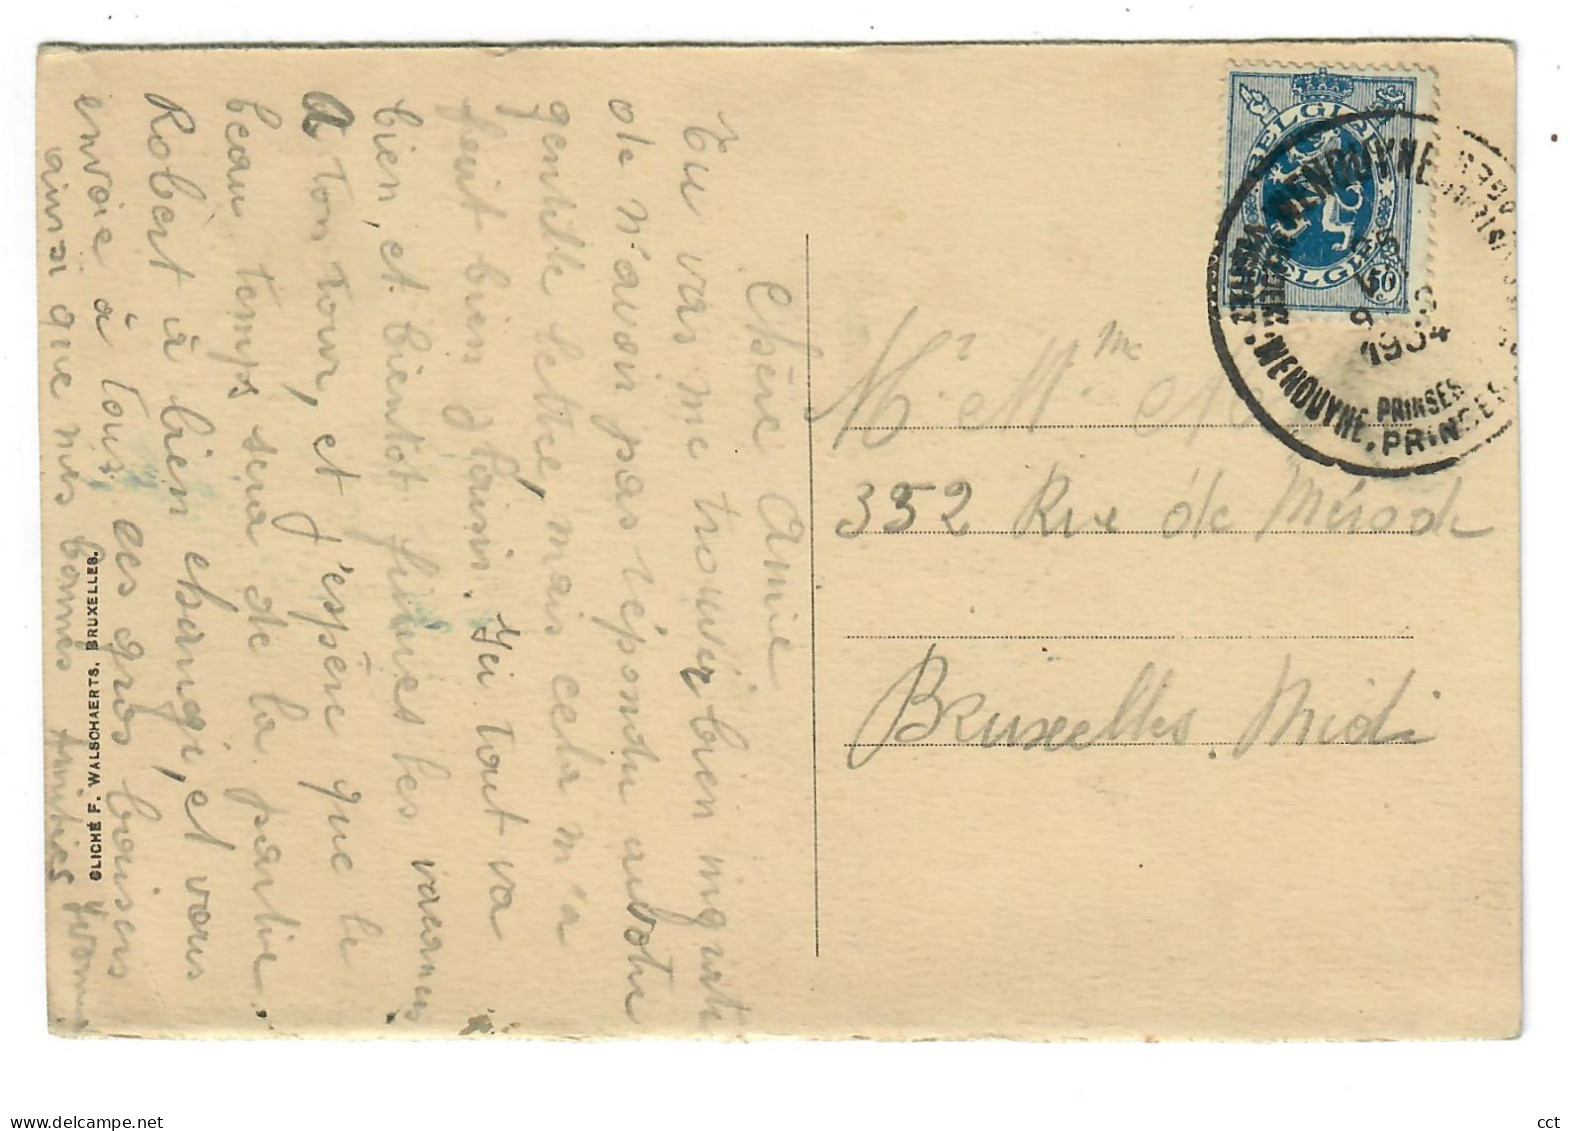 Chère Amie
Tu vas me trouver bien ingrate
de n'avoir pas répondu a votre
gentille lettre, mais cela m'a
fait bien plaisir. Ici tout va
bien, et bientot finies les vacances
A ton tour, et j'espère que le
beau temps sera de la partie.
Robert à bien changé, et vous
envoie à tous, ces gros baisers
ainsi que mes bonnes amitiés Yvonne
CLICHÉ F. WALSCHAERTS, BRUXELLES.
BELGIE
BELGIQUE
50
c
WENDUYNE
1934
WENDUYNE. PRINSES
PRINSES
Mr. Mme
352 Rue de Mérode
Bruxelles. Midi
cct